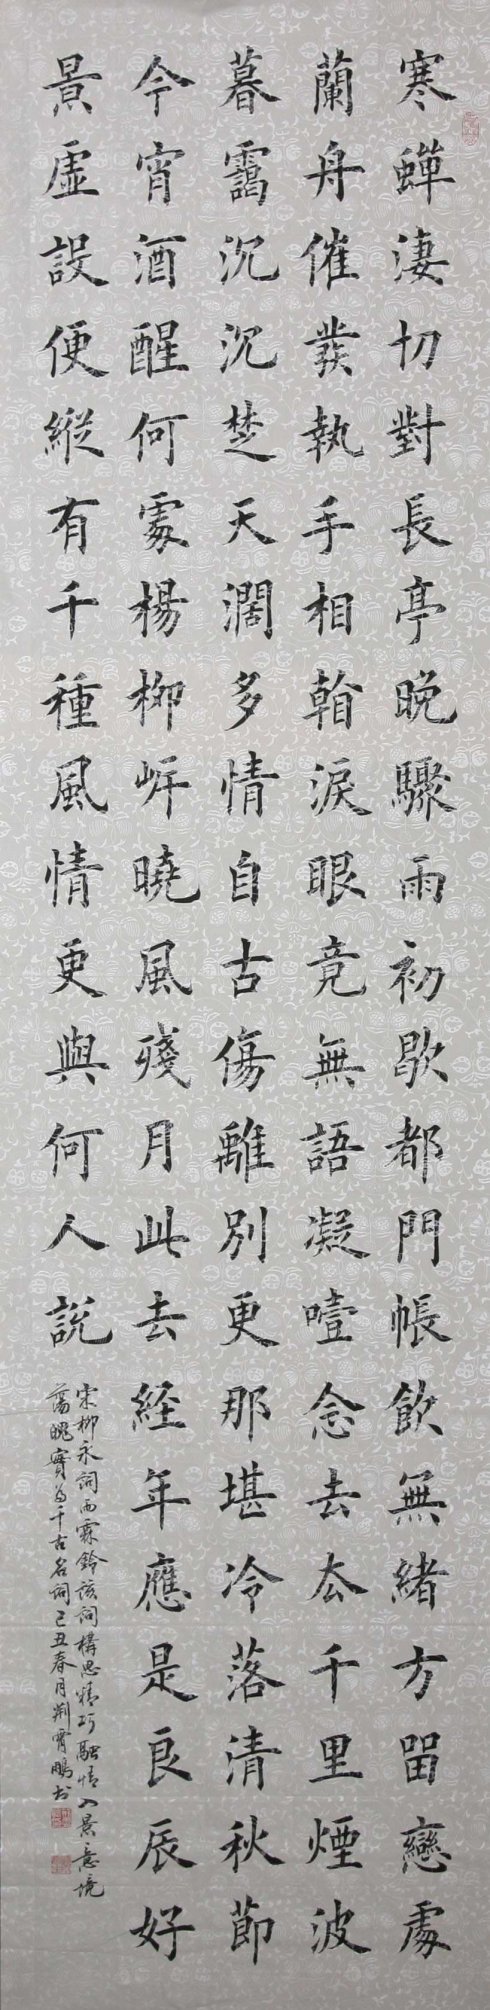 寒蟬淒切對長亭晚驟雨初歇都門帳飲無緒方留戀處
蘭舟催發執手相看淚眼竟無語凝噎念去厺千里煙波
暮靄沉沉楚天濶多情自古傷離別更那堪冷落清秋節
今宵酒醒何處楊柳岸曉風殘月此去経年應是良辰好
景虛設便縱有千種風情更與何人說
宋柳永詞雨霖鈴該詞構思精巧融情入景意境
蕩魄實為千古名詞己丑春月荊霄鵬書